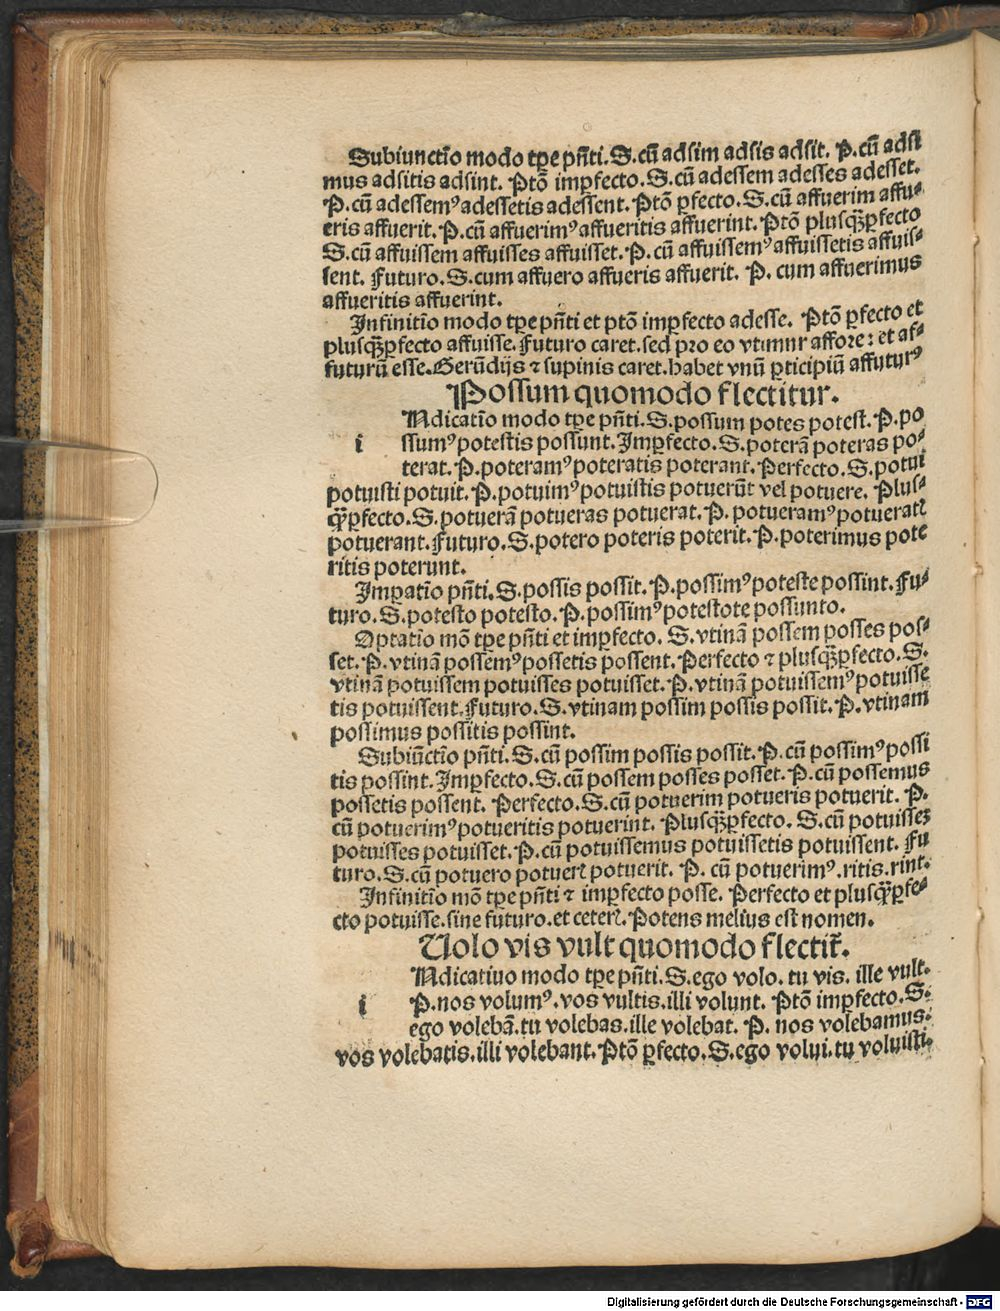 Subiunctiõ modo tp̱e pñti. S. cũ adsim adsis adsit. P. cũ adsi
mus adsitis adsint. Ptõ imp̱fecto. S. cũ adessem adesses adesset.
P. cũ adessemꝰ adessetis adessent. Ptõ p̱fecto. S. cũ affuerim affu⸗
eris affuerit. P. cũ affuerimꝰ affueritis affuerint. Ptõ plusq̃p̱fecto
S. cũ affuissem affuisses affuisset. P. cũ affuissemꝰ affuissetis affuis⸗
sent. Futuro. S. cum affuero affueris affuerit. P. cum affuerimus
affueritis affuerint.
Infinitĩo modo tp̱e pñti et ptõ imp̱fecto adesse. Ptõ p̱fecto et
plusq̃p̱fecto affuisse. Futuro caret. sed pro eo vtimur affore: et af⸗
futurũ esse. Gerũdijs ⁊ supinis caret. habet vnũ p̱ticipiũ affuturꝰ
Possum quomodo flectitur.
Ndicatĩo modo tp̱e pñti. S. possum potes potest. P. po
i ssumꝰ potestis possunt. Imp̱fecto. S. poterã poteras po⸗
terat. P. poteramꝰ poteratis poterant. Perfecto. S. potui
potuisti potuit. P. potuimꝰ potuistis potuerũt vel potuere. Plus⸗
q̃p̱fecto. S. potuerã potueras potuerat. P. potueramꝰ potueratꝭ
potuerant. Futuro. S. potero poteris poterit. P. poterimus pote
ritis poterunt.
Imp̱atĩo pñti. S. possis possit. P. possimꝰ poteste possint. Fu⸗
turo. S. potesto potesto. P. possimꝰ potestote possunto.
Optatĩo mõ tp̱e pñti et imp̱fecto. S. vtinã possem posses pos⸗
set. P. vtinã possemꝰ possetis possent. Perfecto ⁊ plusq̃p̱fecto. S.
vtinã potuissem potuisses potuisset. P. vtinã potuissemꝰ potuisse
tis potuissent. Futuro. S. vtinam possim possis possit. P. vtinam
possimus possitis possint.
Subiũctĩo pñti. S. cũ possim possis possit. P. cũ possimꝰ possi
tis possint. Imp̱fecto. S. cũ possem posses posset. P. cũ possemus
possetis possent. Perfecto. S. cũ potuerim potueris potuerit. P.
cũ potuerimꝰ potueritis potuerint. Plusq̃p̱fecto. S. cũ potuisseꝫ
potuisses potuisset. P. cũ potuissemus potuissetis potuissent. Fu
turo. S. cũ potuero potuerꝭ potuerit. P. cũ potuerimꝰ. ritis. rint.
Infinitĩo mõ tp̱e pñti ⁊ imp̱fecto posse. Perfecto et plusq̃p̱fe⸗
cto potuisse. sine futuro. et ceterꝭ. Potens melius est nomen.
Uolo vis vult quomodo flectit᷑.
Ndicatiuo modo tp̱e pñti. S. ego volo. tu vis. ille vult.
i P. nos volumꝰ. vos vultis. illi volunt. Ptõ imp̱fecto. S.
ego volebã. tu volebas. ille volebat. P. nos volebamus.
vos volebatis. illi volebant. Ptõ p̱fecto. S. ego volui. tu voluisti.
Digitalisierung gefördert durch die Deutsche Forschungsgemeinschaft - DFG